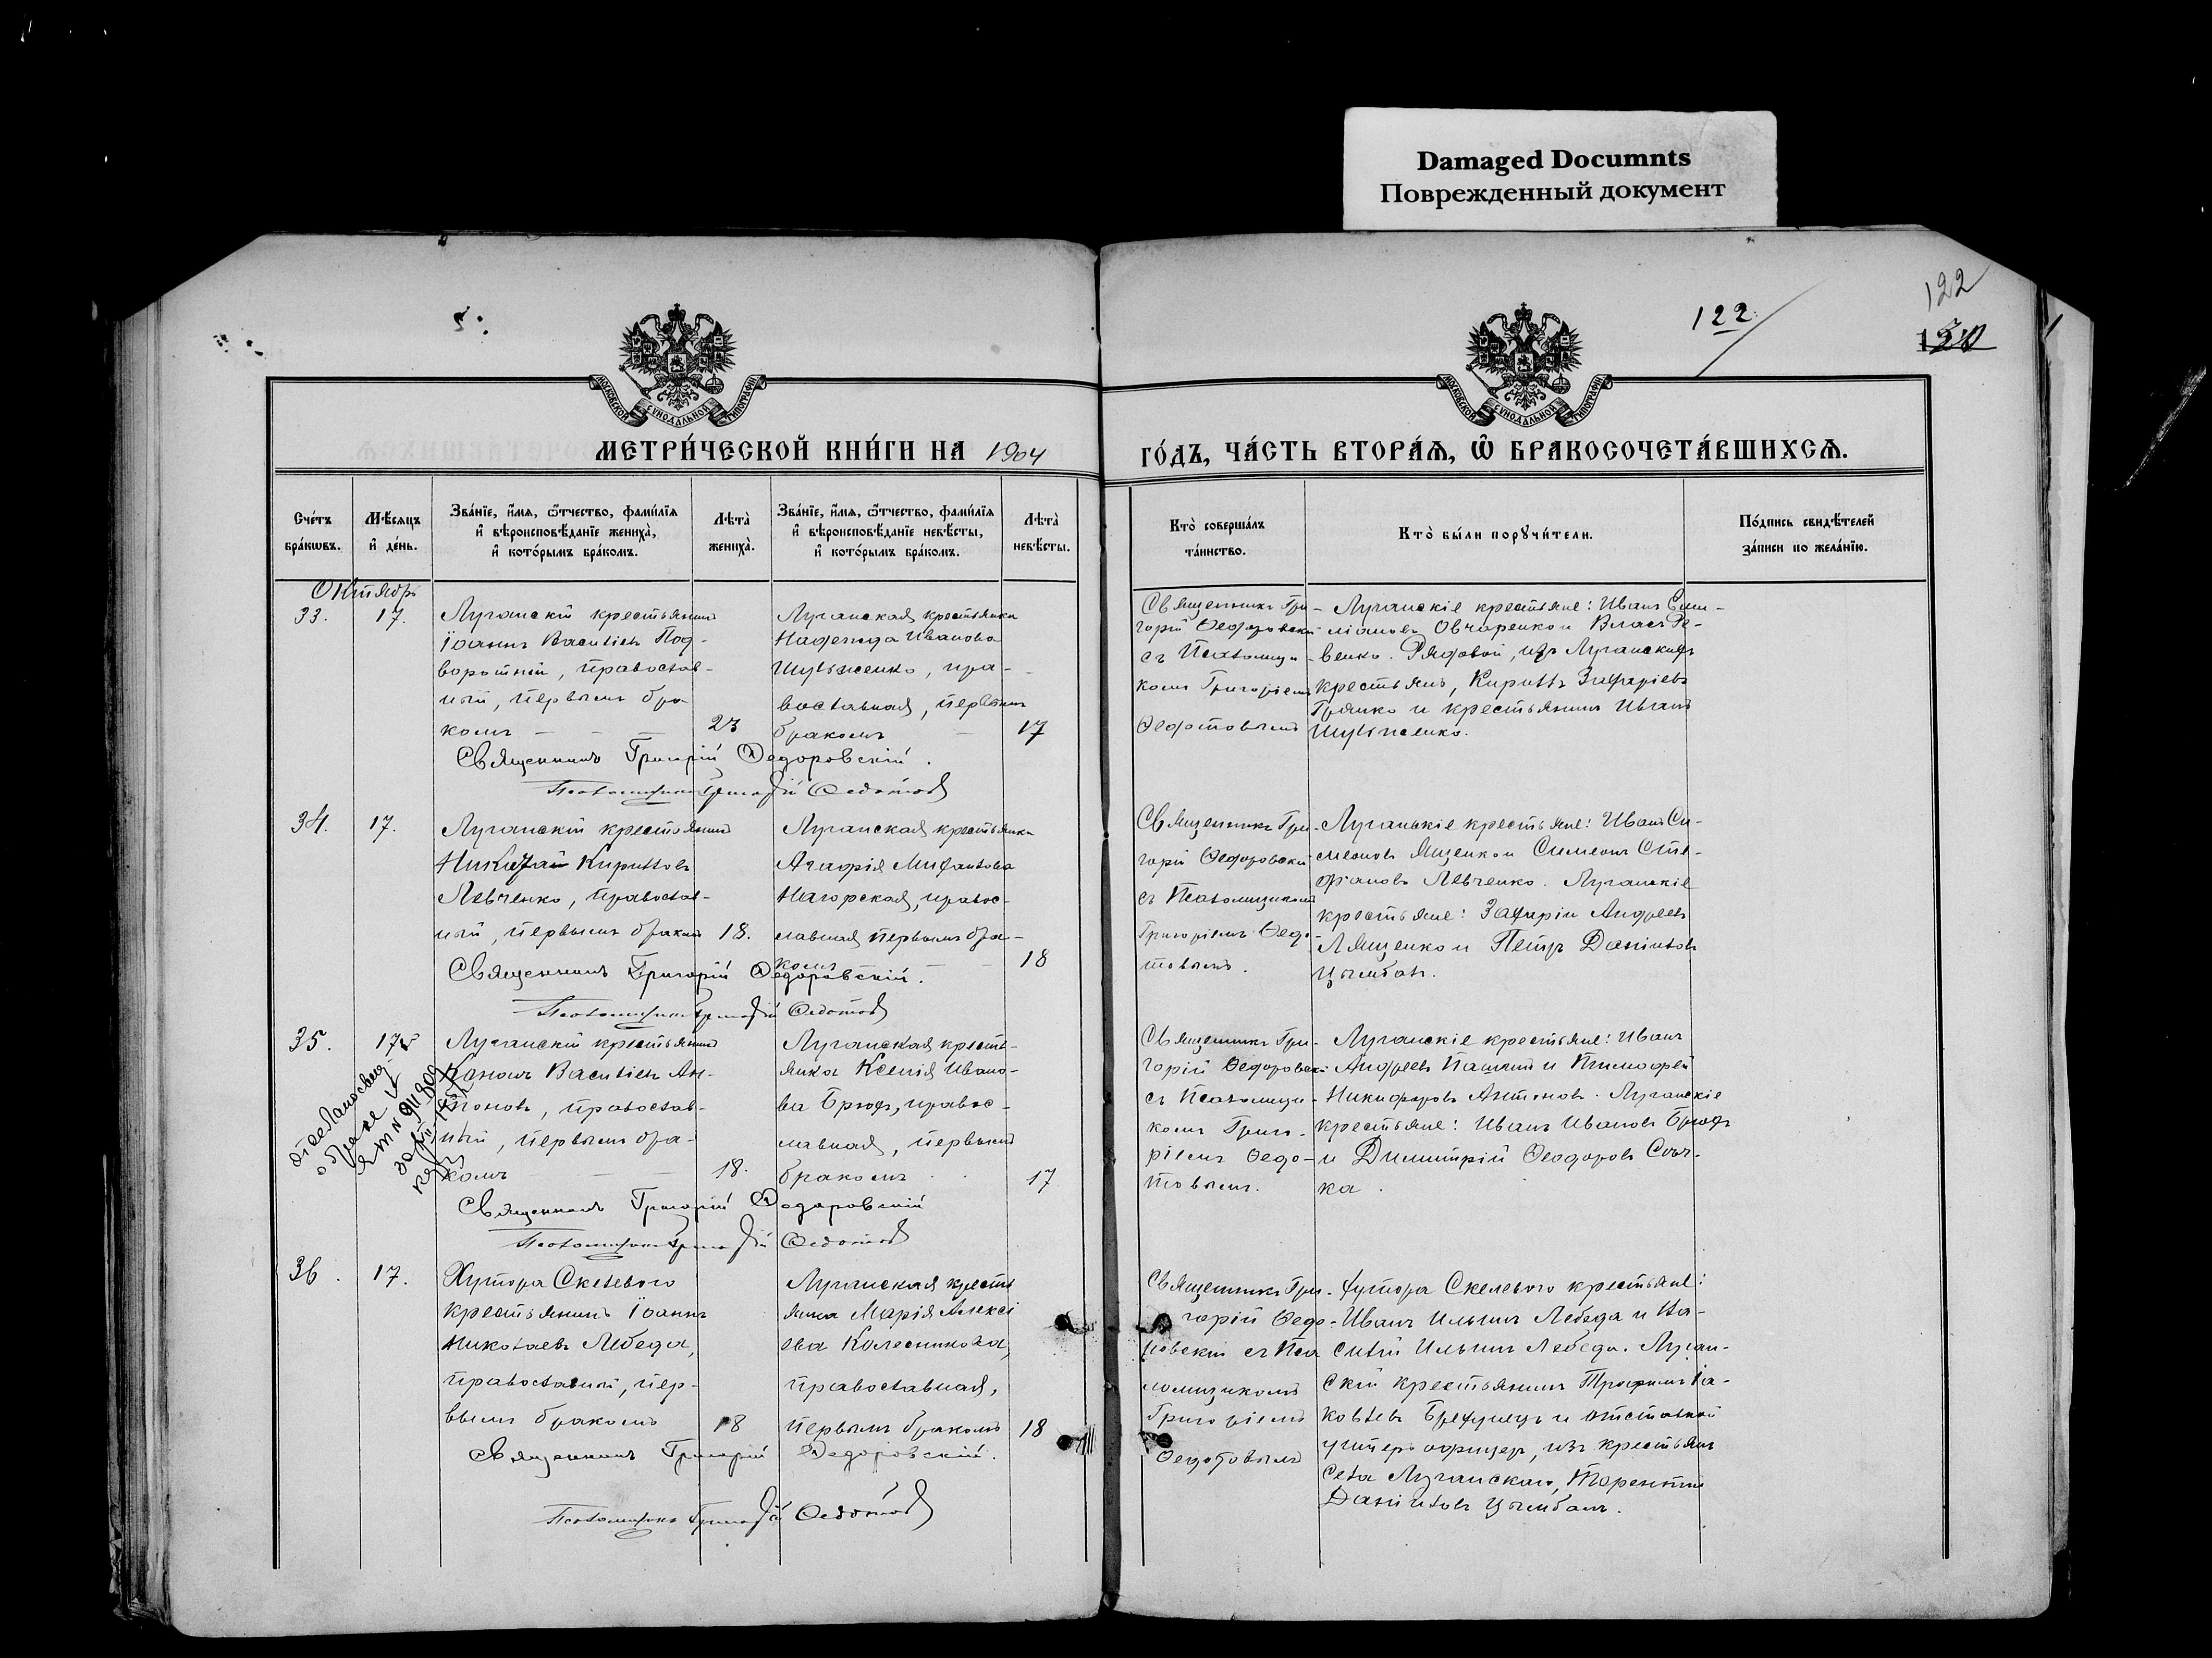 Damaged Documnts
Поврежденный документ
122
122
МОСКОВСКОЙ СУНОДАЛЬНОЙ ТИПОГРАФІИ
МОСКОВСКОЙ СУНОДАЛЬНОЙ ТИПОГРАФІИ
МЕТРИ́ЧЕСКОЙ КНИ́ГИ НА 1904
ГО́ДЪ, ЧА́СТЬ ВТОРА́Ѧ, Ѽ БРАКОСОЧЕТА́ВШИХСѦ.
Счéтъ бра́кωвъ.
Мѣ́сяцъ и҆ де́нь.
Зва́нїе, и҆́мѧ, ѻ҆́тчество, фами́лїѧ
и҆ вѣроисповѣ́данїе жениха̀,
и҆ кото́рымъ бра́комъ.
Лѣта̀ жениха̀.
Зва́нїе, и҆́мѧ, ѻ҆́тчество, фами́лїѧ
и҆ вѣроисповѣ́данїе невѣ́сты,
и҆ кото́рымъ бра́комъ.
Лѣта̀ невѣ́сты.
Кто̀ соверша́лъ
та́инство.
Кто̀ бы́ли порꙋчи́тели.
По́дпись свидѣ́телей
за́писи по жела́нїю.
Октябрь
33.
17.
Луганскій крестьянинъ
Іоаннъ Васильевъ Под-
воротній, православ-
ный, первымъ бра-
комъ
23
Луганская крестьянка
Надежда Иванова
Шульженко, пра-
вославная, первымъ
бракомъ
17
Священникъ Гри-
горій Ѳедоровскій
съ Псаломщи-
комъ Григоріемъ
Ѳедотовымъ
Луганскіе крестьяне: Иванъ Сим-
Овчаренко и Власъ Ре-
венко. Рядовой, изъ Луганскихъ
крестьянъ, Кириллъ Захаріевъ
Грянко и крестьянинъ Иванъ
Шульженко.
Священникъ Григорій Ѳедоровскій.
Псаломщикъ Григорій Ѳедотовъ
34.
17.
Луганскій крестьянинъ
Николай Кирилловъ
Левченко, православ-
ный, первымъ бракомъ
18.
Луганская крестьянка
Агафія Михайлова
Нагорская, правос-
лавная первымъ бра-
комъ
18
Священникъ Гри-
горій Ѳедоровскій
съ Псаломщикомъ
Григоріемъ Ѳедо-
товымъ.
Луганскіе крестьяне: Иванъ Си-
меоновъ Ященко и Симеонъ Сте-
фановъ Левченко. Луганскіе
крестьяне: Захарій Андреевъ
Лященко и Петръ Даніиловъ
Цымбалъ.
Священникъ Григорій Ѳедоровскій.
Псаломщикъ Григорій Ѳедотовъ
35.
17
Луганскій крестьянинъ
Васильевъ Ан-
тоновъ, православ-
ный, первымъ бра-
комъ
18.
Луганская кресть-
янка Ксенія Ивано-
ва Брюхъ, правос-
лавная, первымъ
бракомъ
17
Священникъ Гри-
горій Ѳедоровскій
съ Псаломщи-
комъ Григо-
ріемъ Ѳедо-
товымъ.
Луганскіе крестьяне: Иванъ
Андреевъ и Тимофей
Никифоровъ Антоновъ. Луганскіе
крестьяне: Иванъ Ивановъ Брюхъ
и Димитрій Ѳеодоровъ
ка.
о браке
Священникъ Григорій Ѳедоровскій
Псаломщикъ Григорій Ѳедотовъ
36.
17.
Хутора Скелеваго
крестьянинъ Іоаннъ
Николаевъ Лебеда,
православный, пер-
вымъ бракомъ
18
Луганская кресть
янка Марія Алексі
ева Колесникова,
православная,
первымъ бракомъ
18
Священникъ Гри-
горій Ѳедо-
ровскій съ Пса
ломщикомъ
Григоріемъ
Ѳедотовымъ
Хутора Скелевого крестьяне:
Иванъ Ильинъ Лебеда и Ва-
силій Ильинъ Лебеда. Луган-
скій крестьянинъ Трофимъ Іа-
ковлевъ и отставной
унтеръ офицеръ, изъ крестьянъ
села Луганскаго, Терентій
Даніиловъ Цымбалъ.
Священникъ Григорій Ѳедоровскій.
Псаломщикъ Григорій Ѳедотовъ